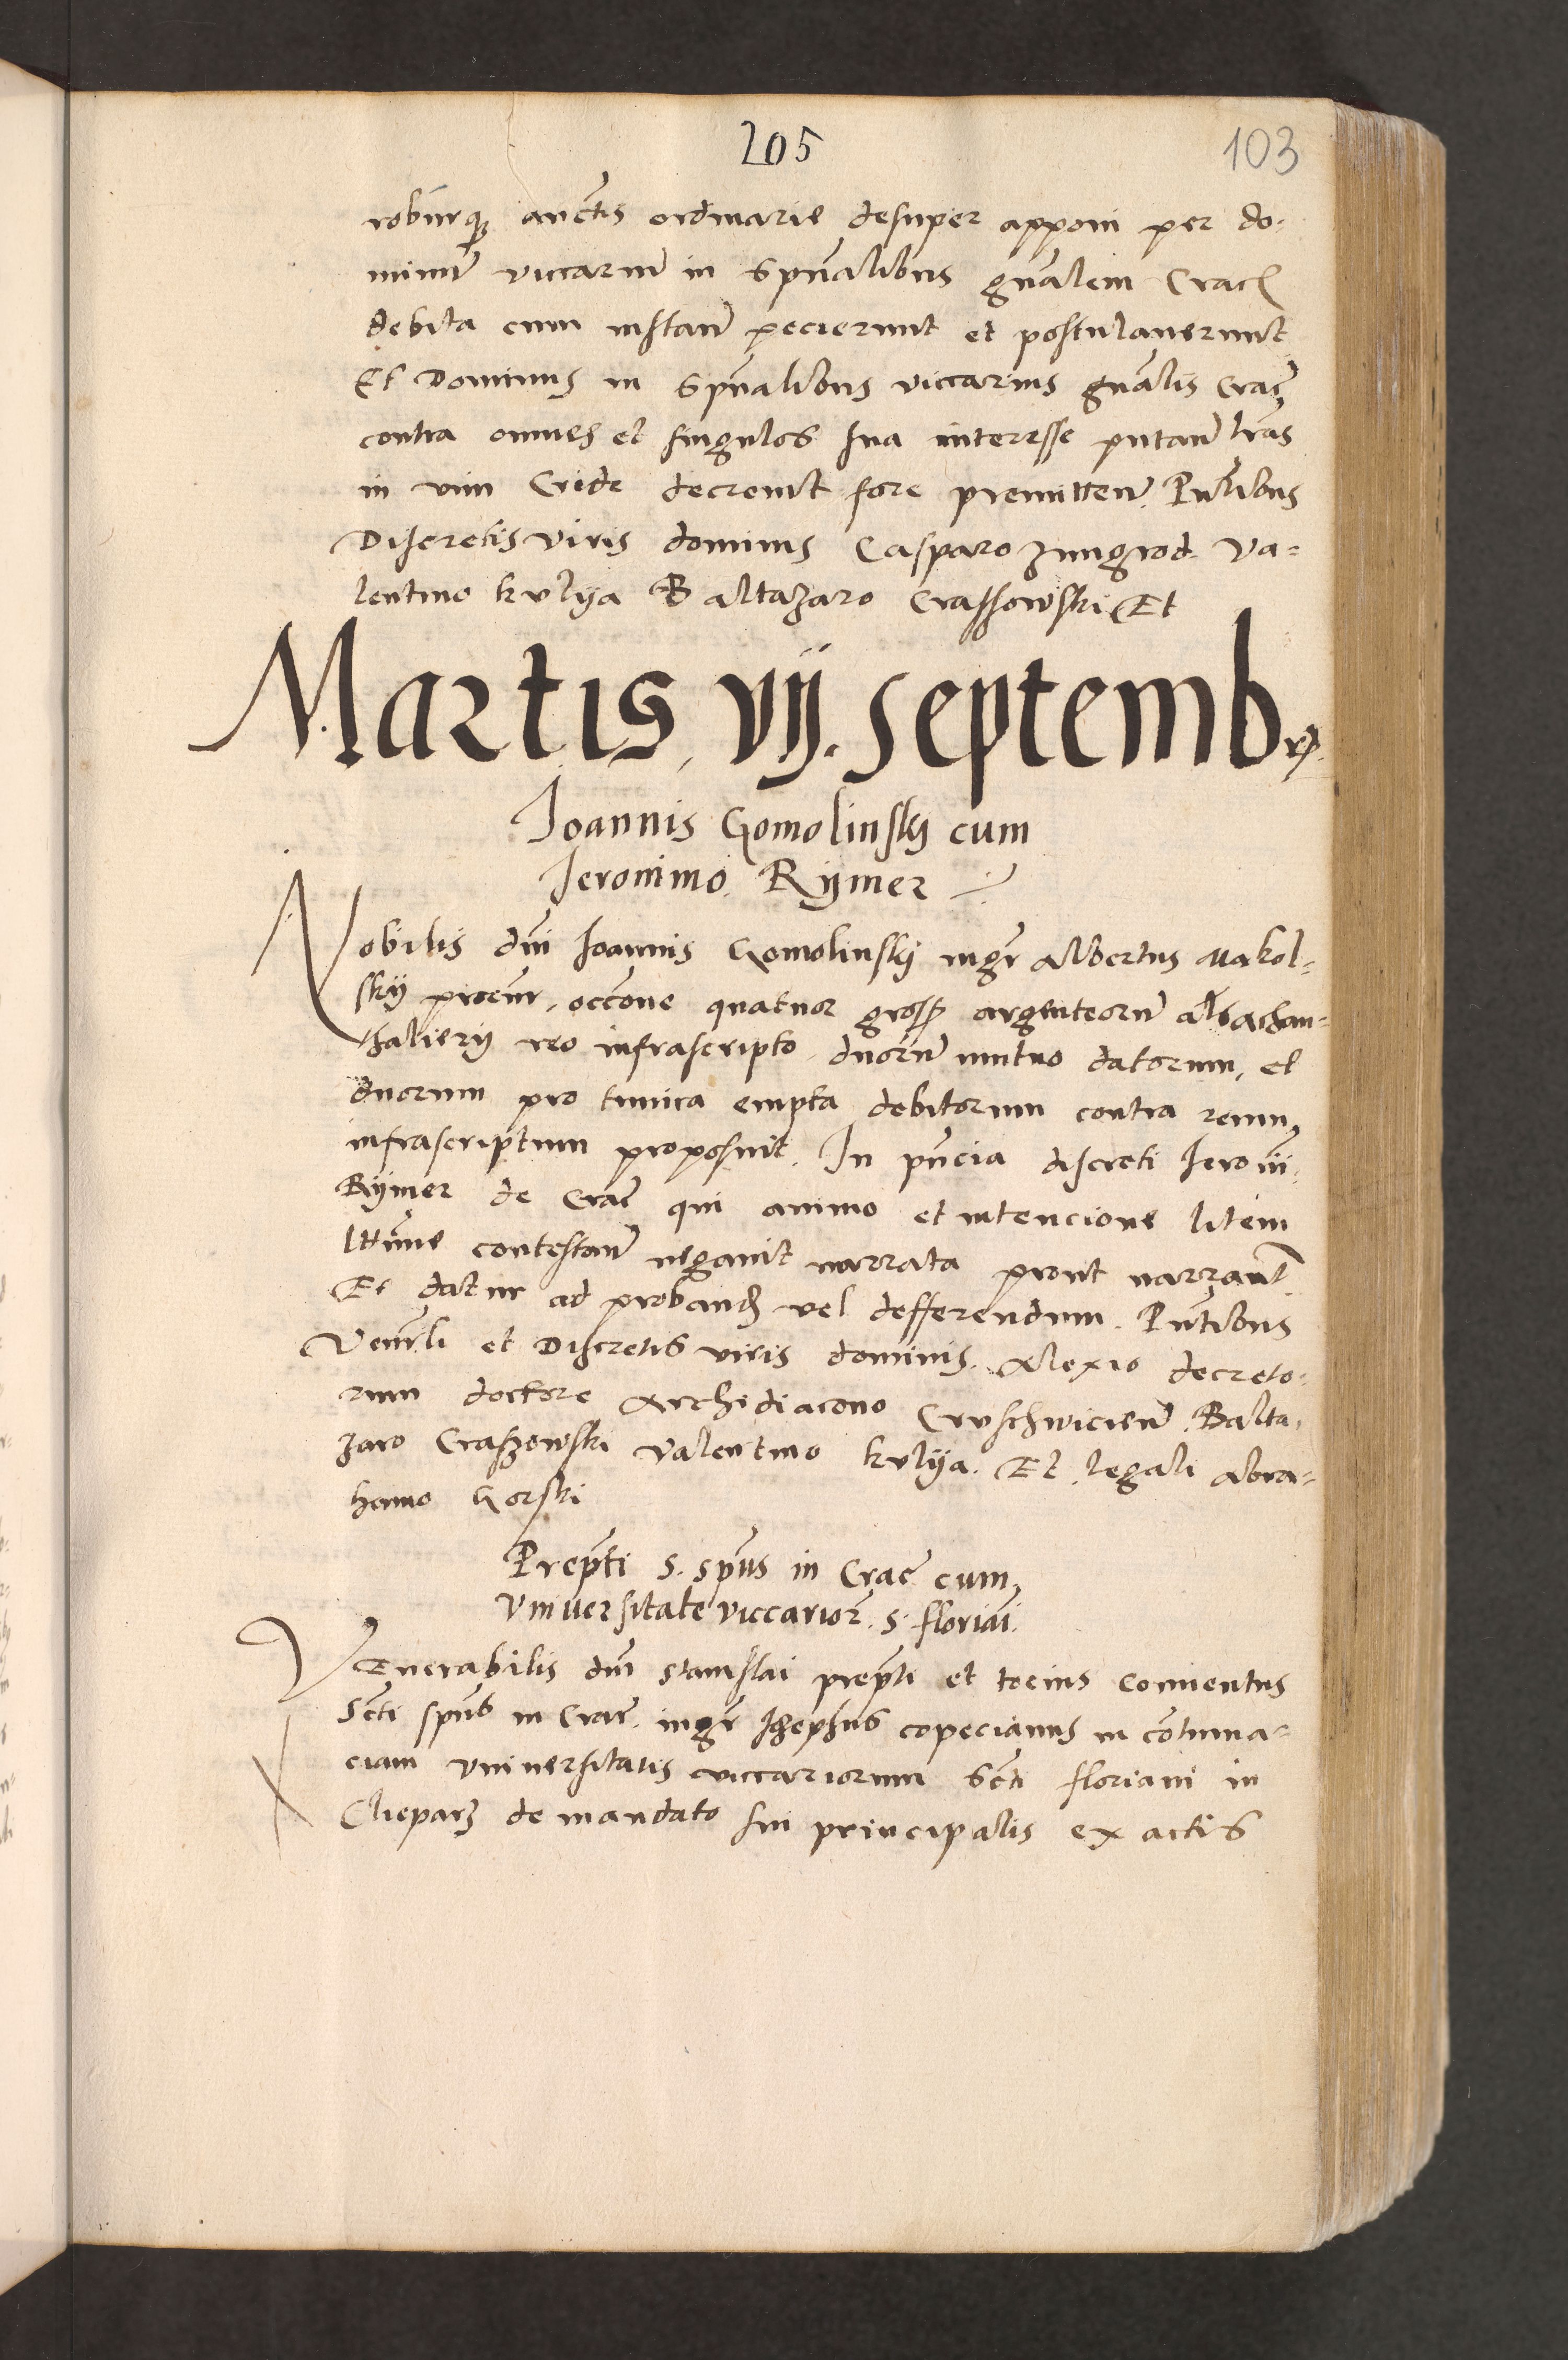 205
103
roburq₃ auctis ordinarie desuper apponi per do-
minum̄ viccarium̄ in Spūalibus gn̄alem Crac̄
debita cum instan̄ pecierunt et postulaverunt
Et Dominus in Spūalibus viccarius gn̄alis Crac̄
contra omnes et singulos sua interesse putan̄ lr̄as
in vim Cride decrevit fore premitten̄. Pn̄tibus
Discretis viris dominis Casparo Jungrod. Va-
lentino kulya Baltazaro Crassowski Et
Martis. vij. Septembr.
Joannis Gomolinskÿ cum
Jeronimo Rÿmer
Nobilis dn̄i Joannis Gomolinskÿ mgr̄ Albertus Makol-
skÿ procur̄. occōne quatuor gross argenteorum̄
thalierÿ reo infrascripto. duorum̄ mutuo datorum, et
duorum pro tunica empta debitorum contra reum
infrascriptum proposuit. In pn̄cia discreti Jeroni.
Rÿmer de Crac̄ qui animo et intencione litem
littīme contestan̄ negavit narrata prout narrant̄
Et datur ad proband̄ vel defferendum. Pn̄tibus
Ven̄rli et Discretis viris dominis. Alexio decreto-
rum doctore Archidiacono Cruschwicien̄. Balta-
zaro Craszowski Valentino kulÿa. Et legali Abra-
hamo Gorski
Prep̄ti S. Sp̄us in Crac̄ cum
Universitate viccarior̄. S. floriani.
Venerabilis dn̄i Stanislai prep̄ti et tocius Conventus
Scti Sp̄us in Crac̄. mgr̄ Jhosephus copecianus in cōtuma-
ciam Universitatis viccariorum Scti floriani in
Clieparz de mandato sui principalis ex actis